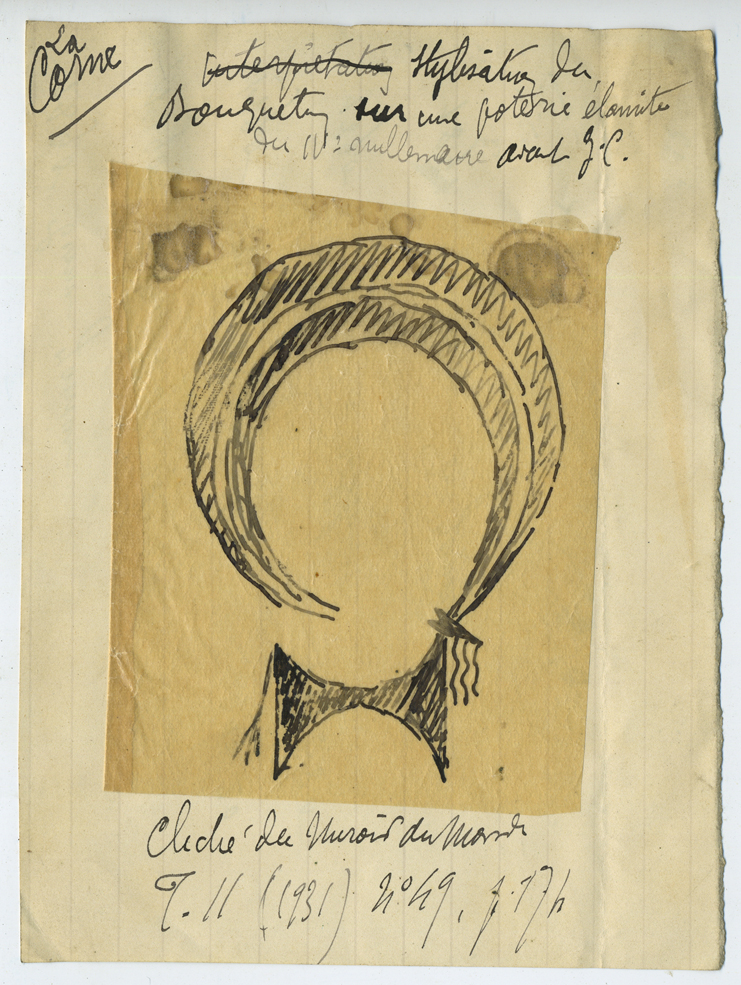 La
Corne
Interprétation Stylisation du
Bouquetin sur une poterie élamite
du IVe millénaire avant J.C.
Cliché du Miroir du Monde
T. II (1931) N° 49, p. 174